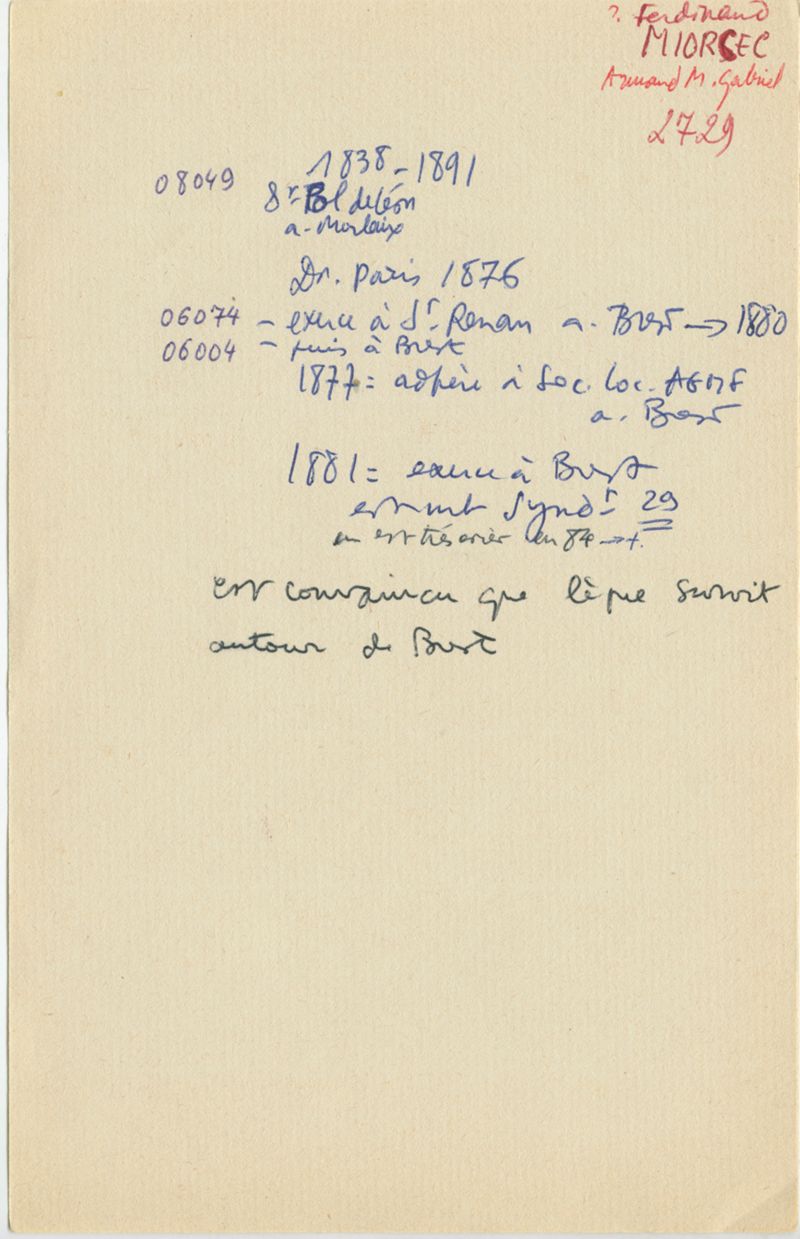 ?. Ferdinand
MIORCEC
Armand M. Gabriel
2729
1838-1891
08049
St Pol de Léon
a. Morlaix
Dr. Paris 1876
06074 - exerce à St. Renan a. Brest → 1880
06004 - puis à Brest
1877 = adhère à Soc. loc. AGMF
a. Brest
1881 = exerce à Brest
est mb Syndt 29
en est trésorier en 84 → +.
est convaincu que lèpre survit
autour de Brest